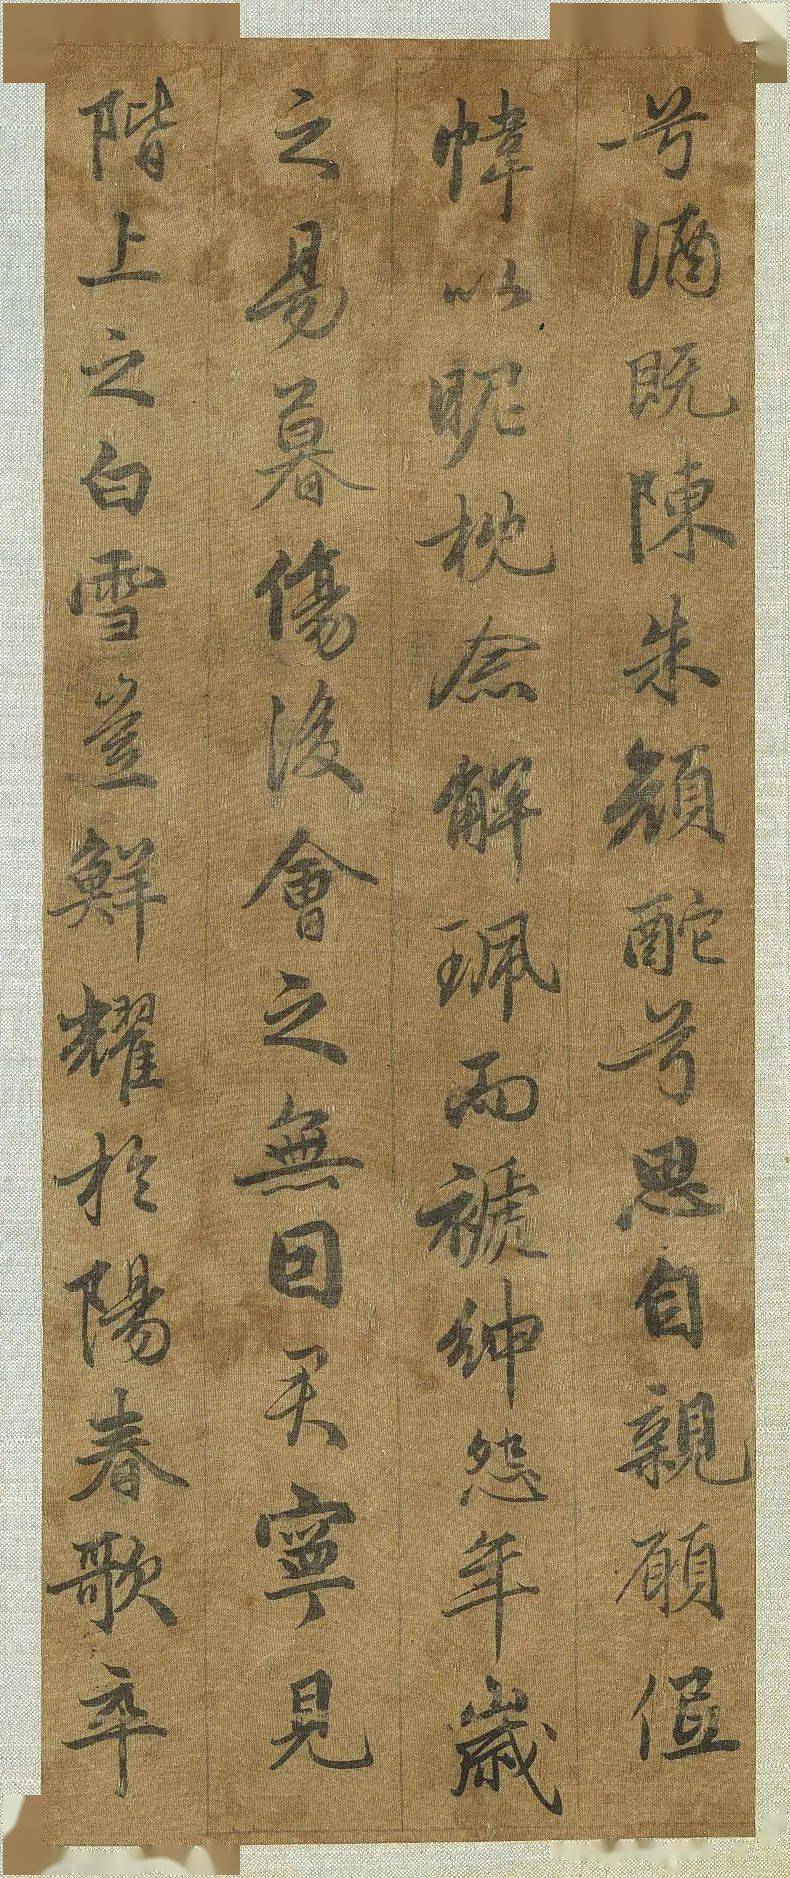 兮酒既陳朱顔酡兮思自親願低
幃以昵枕念解珮而褫紳怨年歲
之易暮傷後會之無因君寧見
階上之白雪豈鮮耀於陽春歌卒